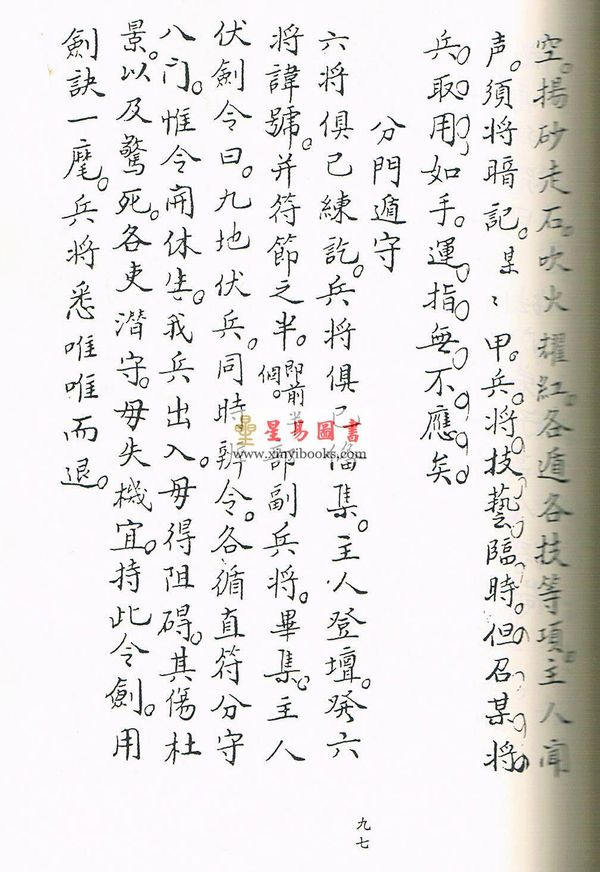 空。揚砂走石。吹火耀紅。各遁各技等項。主人聞
声。須将暗記。某〻甲。兵将技藝臨時。但召某将
兵取用如手。運指無不應矣。
分門遁守
六将俱已練訖。兵将俱已俻集。主人登壇。発六
将諱號。并符節之半。即前半個。部副兵将。畢集。主人
伏劍令曰。九地伏兵。同時辨令。各循直符分守
八门。惟令開休生。我兵出入。毋得阻碍。其傷杜
景。以及驚死。各吏潜守。毋失機宜。持此令劍。用
劍訣一麾。兵将悉唯唯而退。
星易圖書
www.xinyibooks.com
九七